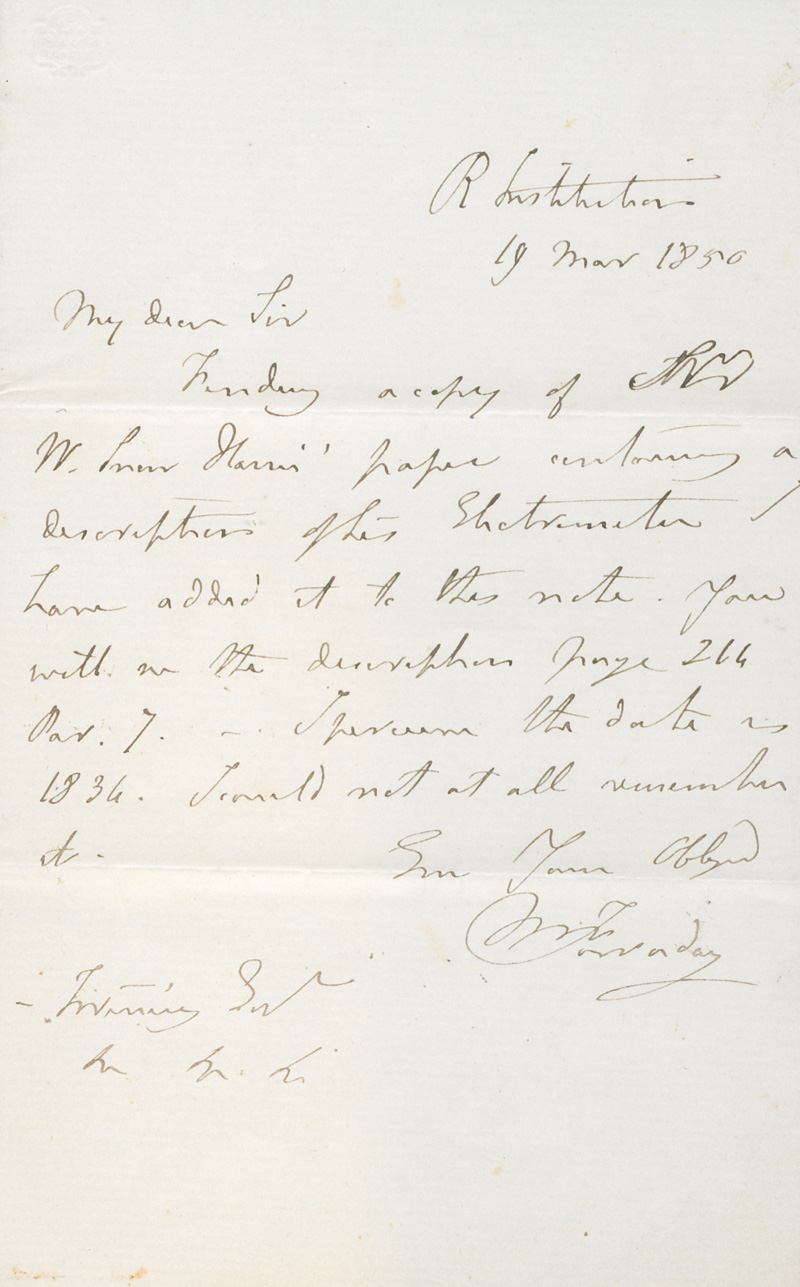 R Institution
19 Mar 1850
My dear Sir
Finding a copy of
W. Snow Harris' paper containing a
description of his Electrometer I
have added it to this note. You
will see the description page 214
Par. 7. - I perceive the date is
1834. I could not at all remember
it -
Ever Your Oblgd
M Faraday
- Twining Esq
&c &c &c